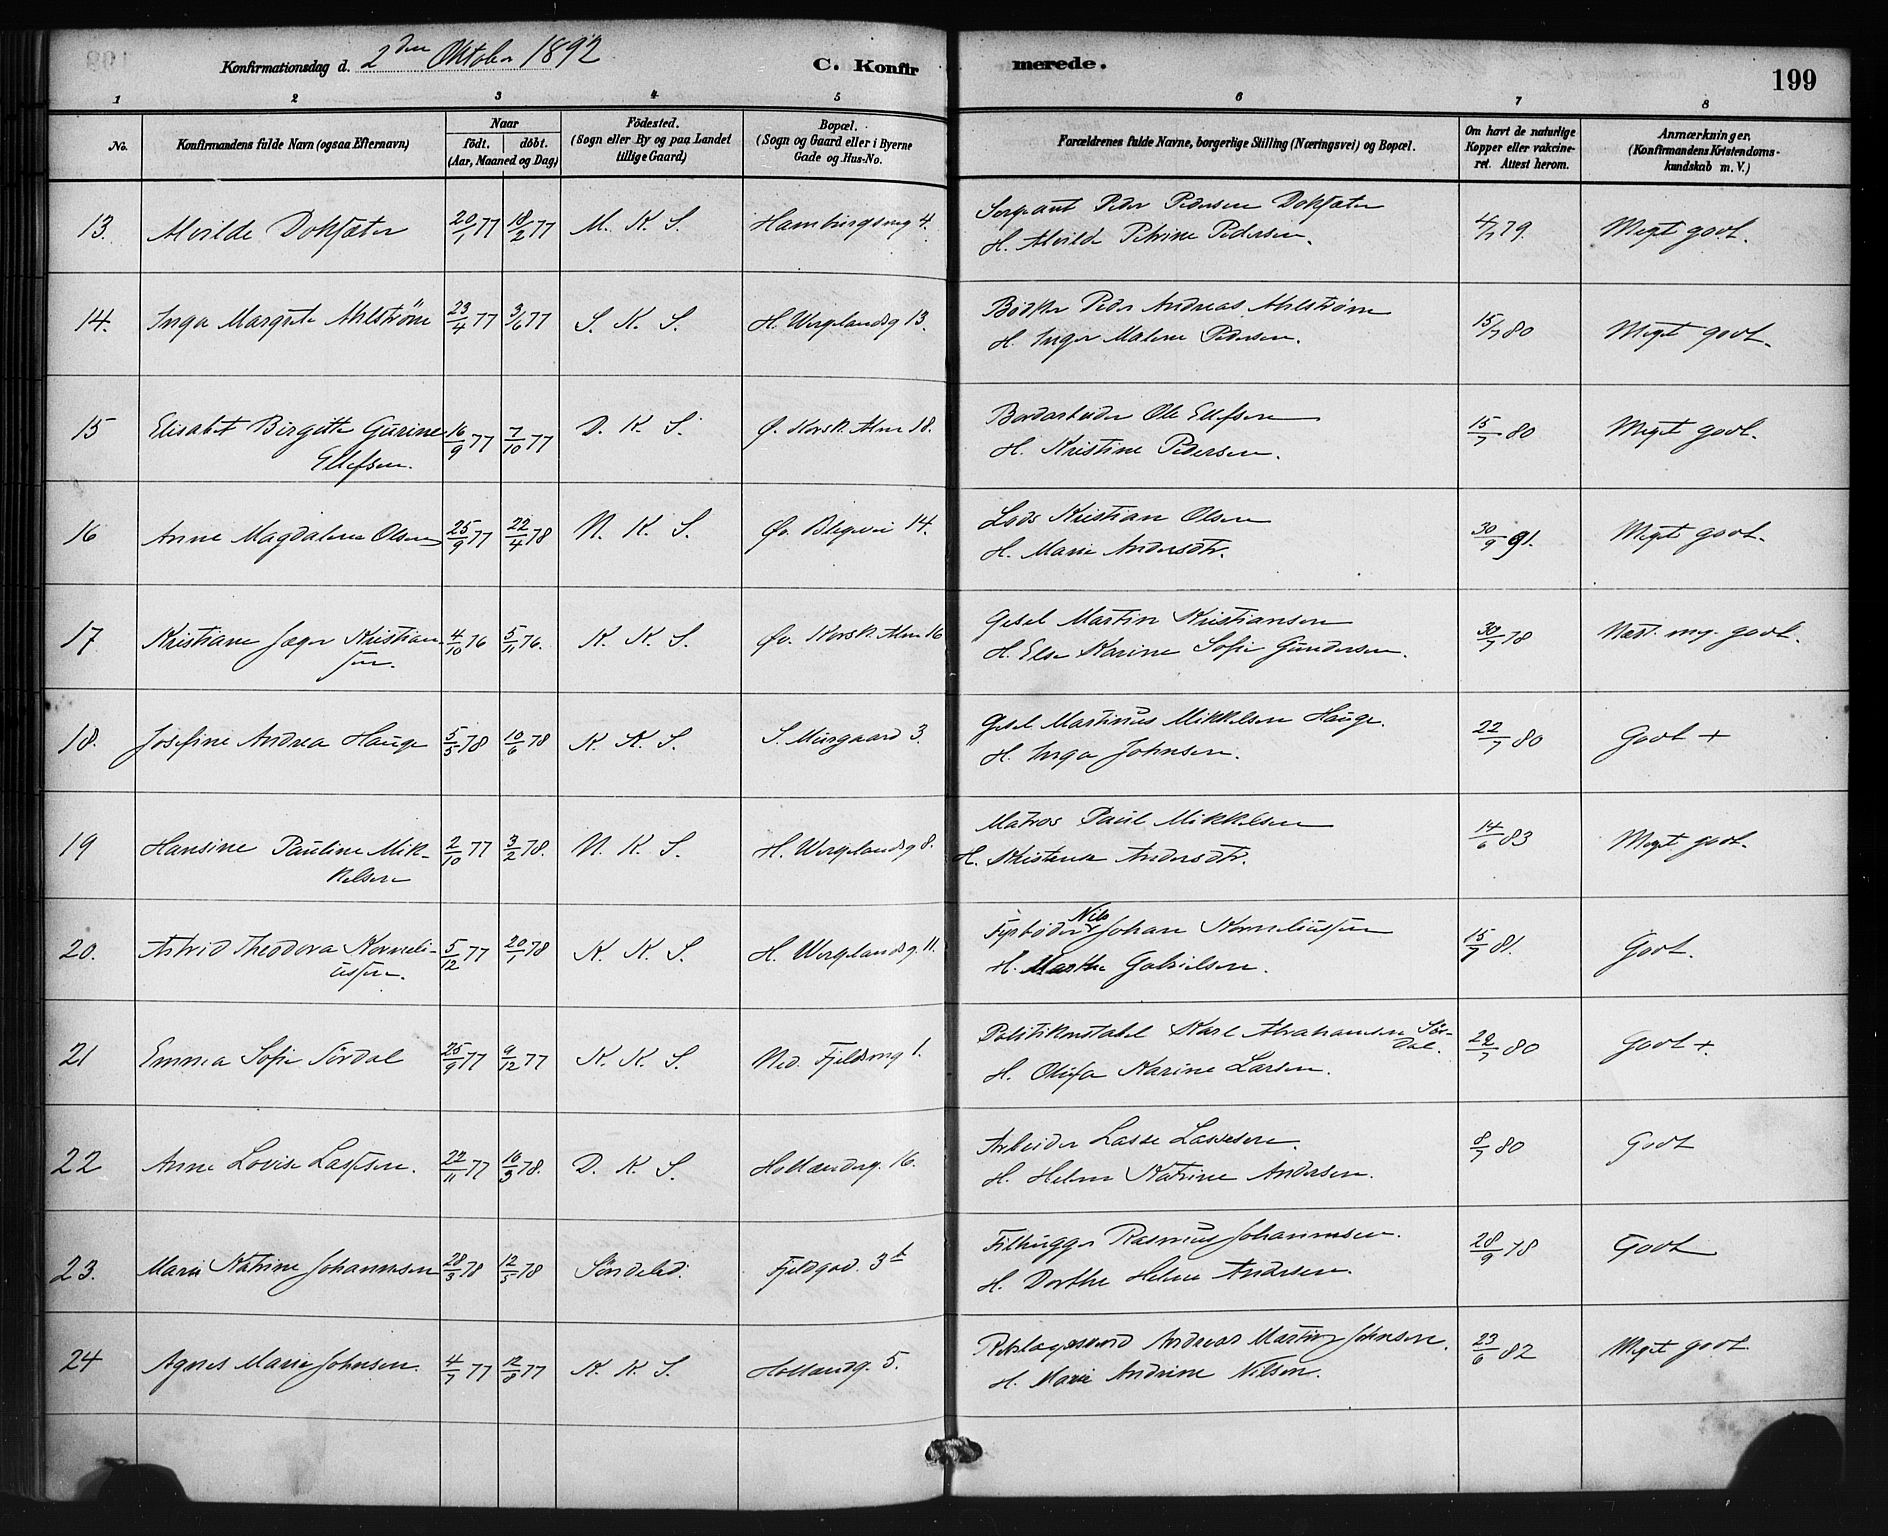 Konfirmationsdag d. 2den Oktober 1892
C. Konfir merede.
199
1 2 3 4 5 6 7 8
No.
Konfirmandens fulde Navn (ogsaa Efternavn)
Naar
födt. döbt.
(Aar, Maaned og Dag)
Födested.
(Sogn eller By og paa Landet
tillige Gaard)
Bopæl.
(Sogn og Gaard eller i Byerne
Gade og Hus-No.
Forældrenes fulde Navne, borgerlige Stilling (Næringsvei) og Bopæl.
Om havt de naturlige
Kopper eller vakcine-
ret. Attest herom.
Anmærkninger.
(Konfirmandens Kristendoms-
kundskab m. V.)
13. Alvilde Doksæter 20/1 77 18/2 77 M. K. S. Hamburgsmg 4.
Sergeant Peder Pedersen Doksæter
H. Alvilde Petrine Pedersen.
4/7 79. Meget godt.
14. Inga Margrete Ahlström 23/4 77 3/6 77 S. K. S. H. Wergelandsg 13.
Bödker Peder Andreas Ahlström
H. Inger Malene Pedersen.
15/7 80 Meget godt.
15 Elisabet Birgitte Gurine
Ellefsen. 16/9 77 7/10 77 D. K. S. Ö. Korsk. Alm 18.
Ole Ellefsen
H. Kristine Pedersen.
15/7 80 Meget godt.
16 Anne Magdalene Olsen 25/9 77 22/4 78 N. K. S. Øv. Blegevei 14.
Lods Kristian Olsen
H. Marie Andersdtr.
30/9 91. Meget godt.
17 Kristiane Jæger Kristian
sen. 4/10 76 5/11 76. K. K. S. Øv. Korsk. Alm 16
Gesel Martin Kristiansen
H. Else Karine Sofie Gundersen.
30/7 78 Næst. mg. godt.
18. Josefine Andrea Hauge 5/5 78 10/6 78 K. K. S. S. Murgaard 3.
Gesel Martinus Mikkelsen Hauge.
H. Inga Johnsen.
22/7 80 Godt +
19 Hansine Pauline Mik-
kelsen 2/10 77 3/2 78. N. K. S. H. Wergelandsg 8.
Matros Paul Mikkelsen
H. Kristense Andersdtr.
14/6 83 Meget godt.
20. Astrid Theodora Korneli-
ussen. 5/12 77 20/1 78 K. K. S. H. Wergelandsg. 11.
Fyrböder Nils Johan Korneliussen
H. Marthe Gabrielsen.
15/7 81. Godt.
21 Emma Sofie Sördal 25/9 77 9/12 77 K. K. S. Ned. Fjeldsmg 1.
Politikonstabel Karl Abrahamsen Sör-
dal.
H. Olufa Karine Larsen.
22/7 80 Godt +.
22 Anne Lovise Lassesen. 22/11 77 10/3 78. D. K. S. Hollænderg. 16.
Arbeider Lasse Lassesen.
H. Helene Katrine Andersen.
8/7 80 Godt
23. Marie Katrine Johannesen 28/3 78 12/5 78 Söndeled. Fjeldgad. 3b
Filhugger Rasmus Johannesen.
H. Dorthe Helene Andersen.
28/9 78 Godt
24 Agnes Marie Johnsen. 4/7 77 12/8 77 K. K. S. Hollendg. 5.
Andreas Martin Johnsen.
H. Marie Andrine Nilsen.
23/6 82 Meget godt